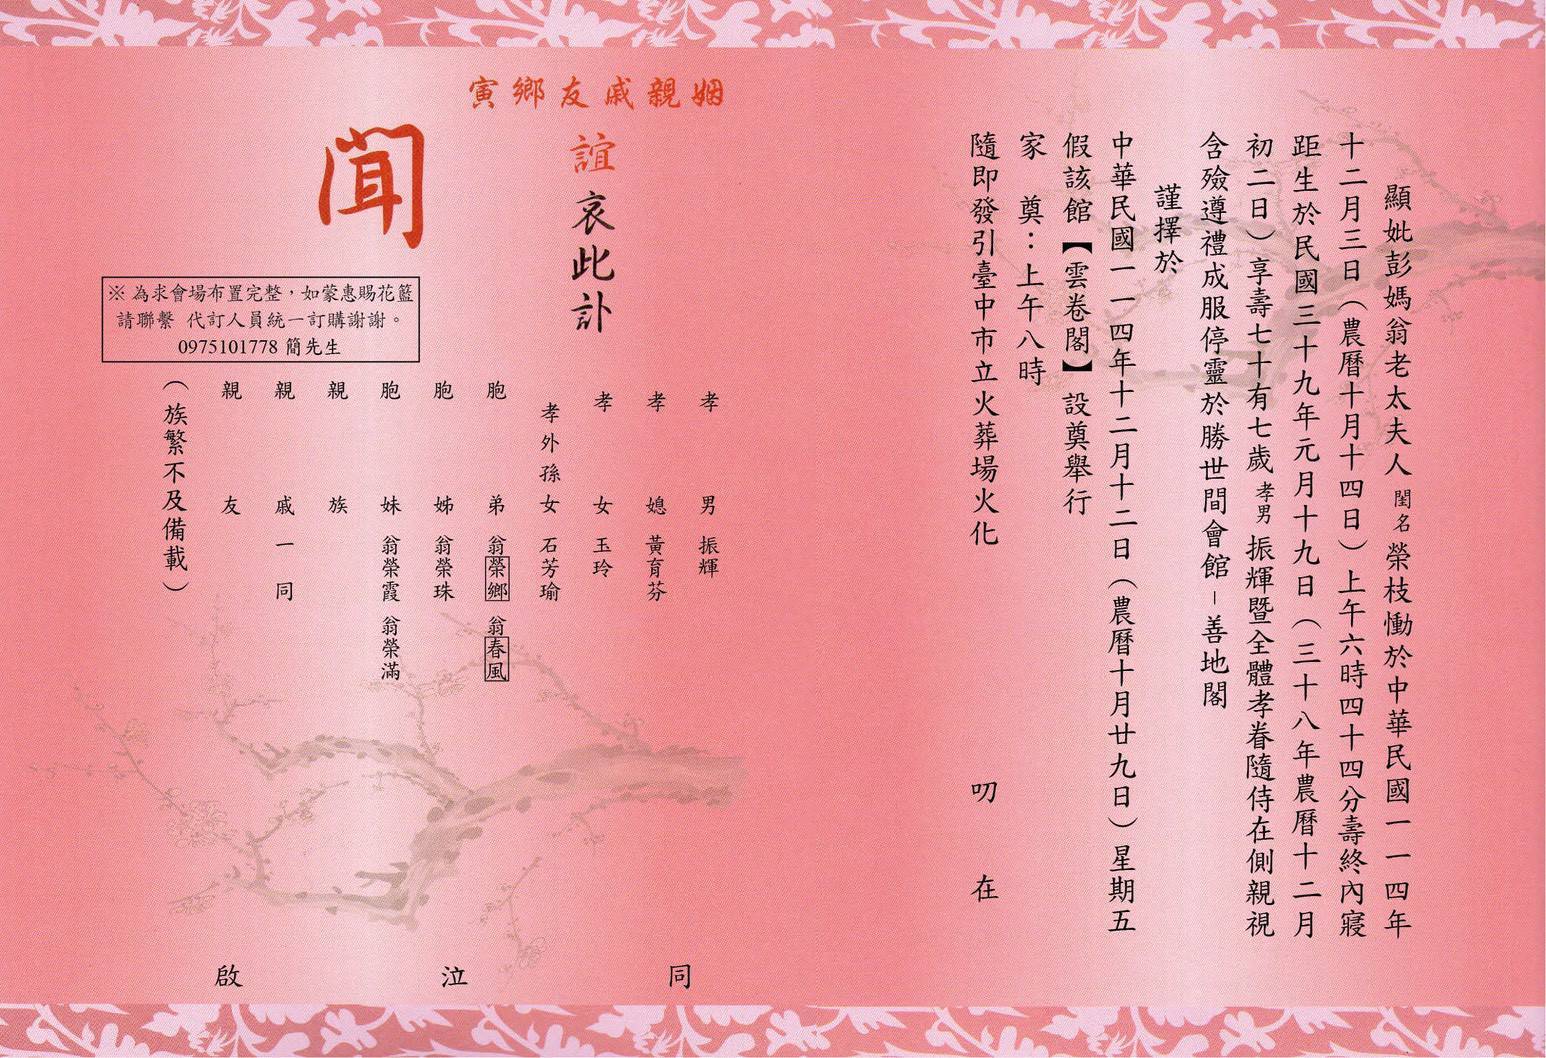 顯妣彭媽翁老太夫人閨名榮枝慟於中華民國一一四年
十二月三日（農曆十月十四日）上午六時四十四分壽終內寢
距生於民國三十九年元月十九日（三十八年農曆十二月
初二日）享壽七十有七歲孝男振輝暨全體孝眷隨侍在側親視
含殮遵禮成服停靈於勝世間會館–善地閣
謹擇於
中華民國一一四年十二月十二日（農曆十月廿九日）星期五
假該館【雲卷閣】設奠舉行
家　奠：上午八時
隨即發引臺中市立火葬場火化
叨　在
姻親戚友鄉寅
誼哀此訃
聞
※為求會場布置完整，如蒙惠賜花籃
請聯繫 代訂人員統一訂購謝謝。
0975101778 簡先生
孝男 振輝
孝媳 黃育芬
孝女 玉玲
孝外孫女 石芳瑜
胞弟 翁榮鄉 翁春風
胞姊 翁榮珠
胞妹 翁榮霞 翁榮滿
親族
親戚 一同
親友
（族繁不及備載）
同泣啟